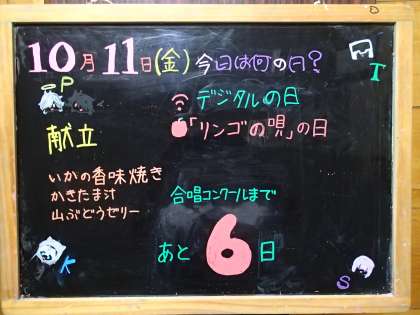 10月11日(金) 今日は何の日?
P
T
デジタルの日
「リンゴの唄」の日
献立
いかの香味焼き
かきたま汁
山ぶどうゼリー
合唱コンクールまで
あと6日
K
S